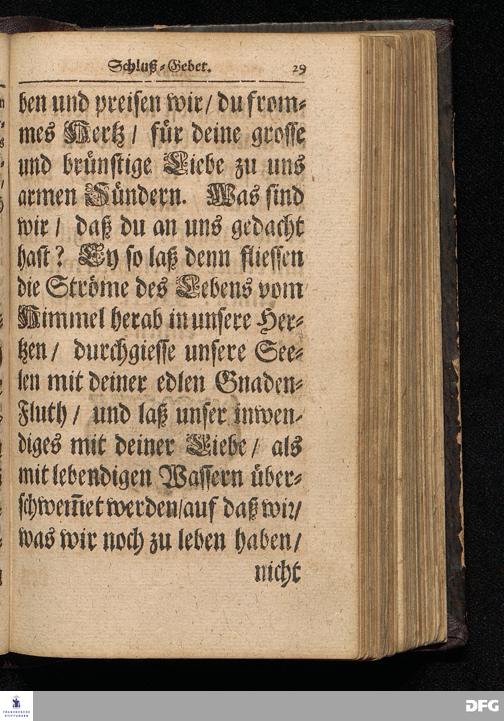 Schluß-Gebet. 29
ben und preisen wir / du from-
mes Hertz / für deine grosse
und brünstige Liebe zu uns
armen Sündern. Was sind
wir / daß du an uns gedacht
hast? Ey so laß denn fliessen
die Ströme des Lebens vom
Himmel herab in unsere Her-
tzen / durchgiesse unsere See-
len mit deiner edlen Gnaden-
Fluth / und laß unser inwen-
diges mit deiner Liebe / als
mit lebendigen Wassern über-
schwem̃et werden / auf daß wir /
was wir noch zu leben haben /
nicht
FRANCKESCHE
STIFTUNGEN
DFG